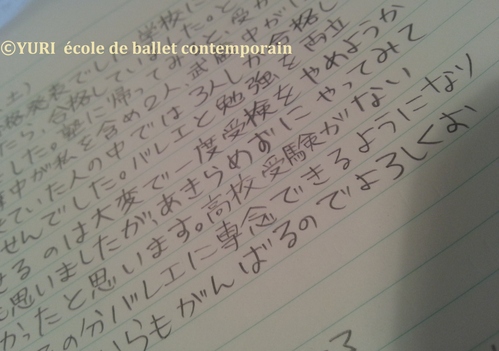 ©YURI école de ballet contemporain
土)
格発表でした。学校に
たら、合格していました。と
した。塾に帰ってみると、受か
中が私を含め2人、武蔵中が
ていた人の中では3人しか合格し
せんでした。バレエと勉強を両立
せるのは大変で一度受検をやめようか
も思いましたがあきらめずにやってみて
かったと思います。高校受験がない
の分バレエに専念できるようになり
らもがんばるのでよろしくお